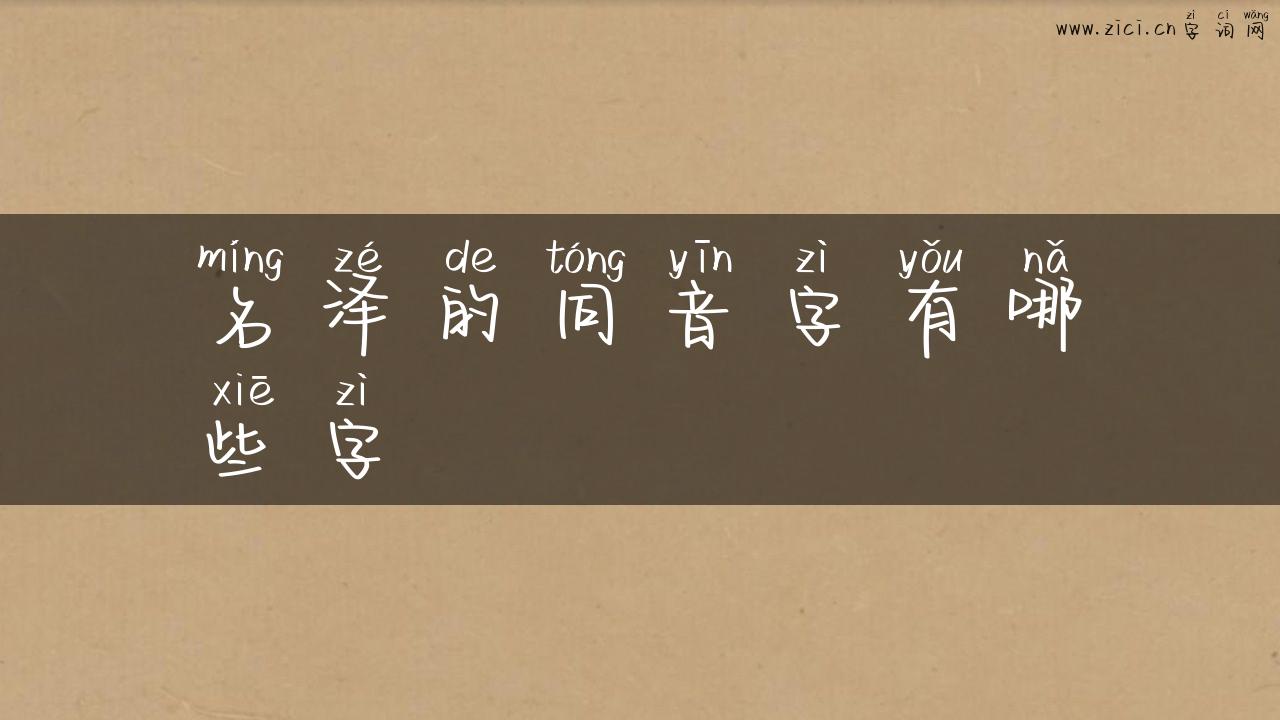 zì cí wǎng
www.zici.cn 字 词 网
míng zé de tóng yīn zì yǒu nǎ
名 泽 的 同 音 字 有 哪
xiē zì
些 字